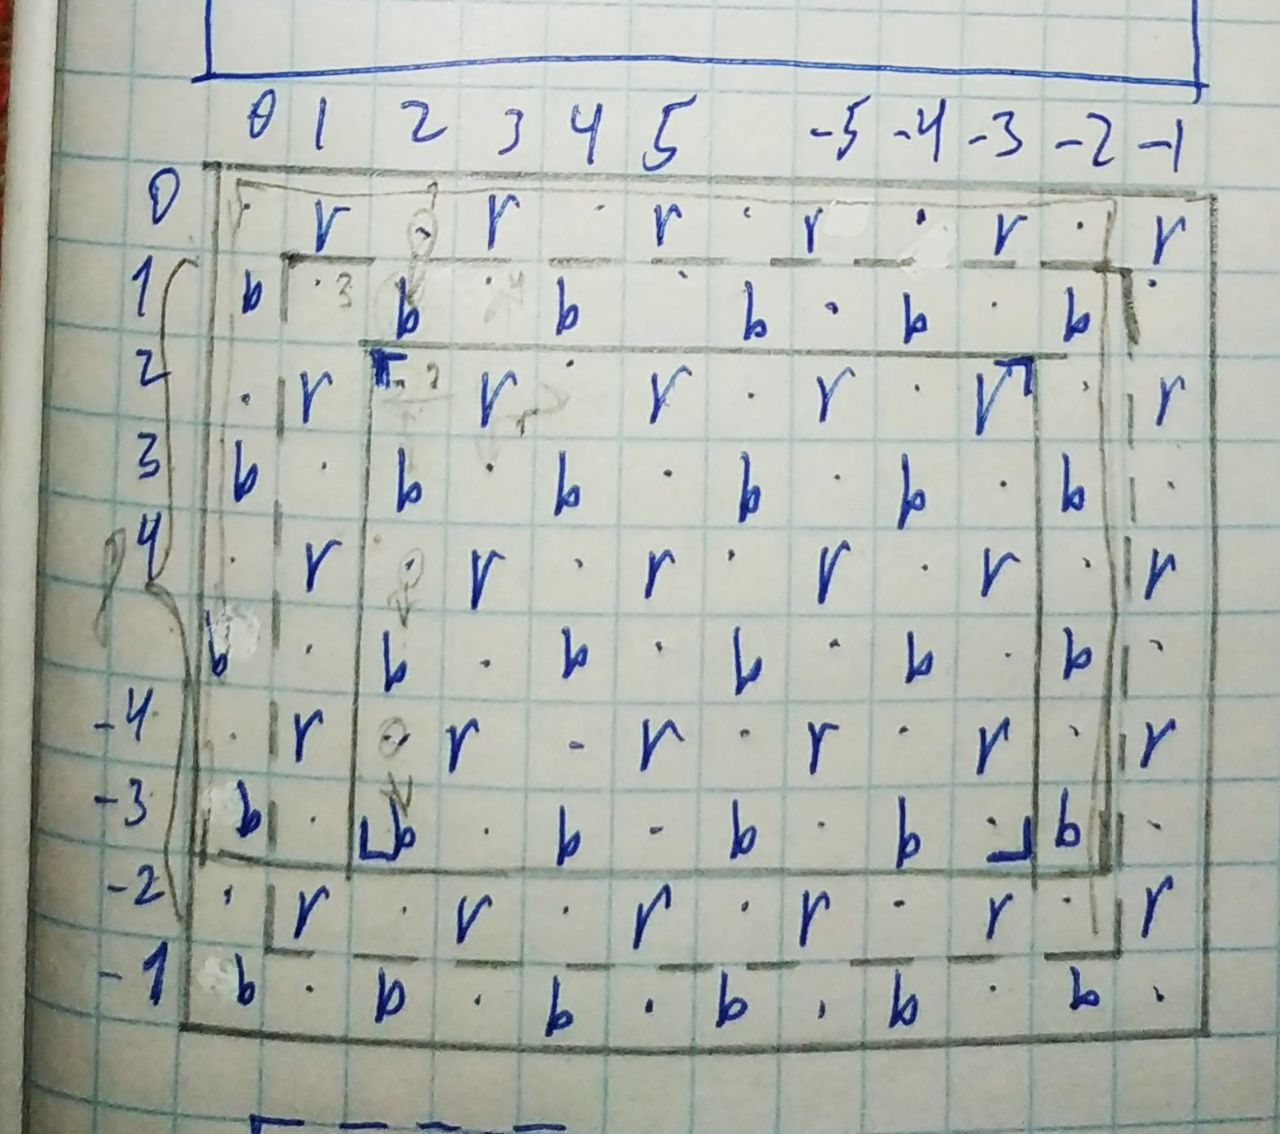 0 1 2 3 4 5 -5 -4 -3 -2 -1
0 · r · r · r · r · r · r
1 b · 3 b · b · b · b · b ·
2 · r · r · r · r · r · r
3 b · b · b · b · b · b ·
4 · r · r · r · r · r · r
b · b · b · b · b · b ·
-4 · r · r · r · r · r · r
-3 b · b · b · b · b · b ·
-2 · r · r · r · r · r · r
-1 b · b · b · b · b · b ·